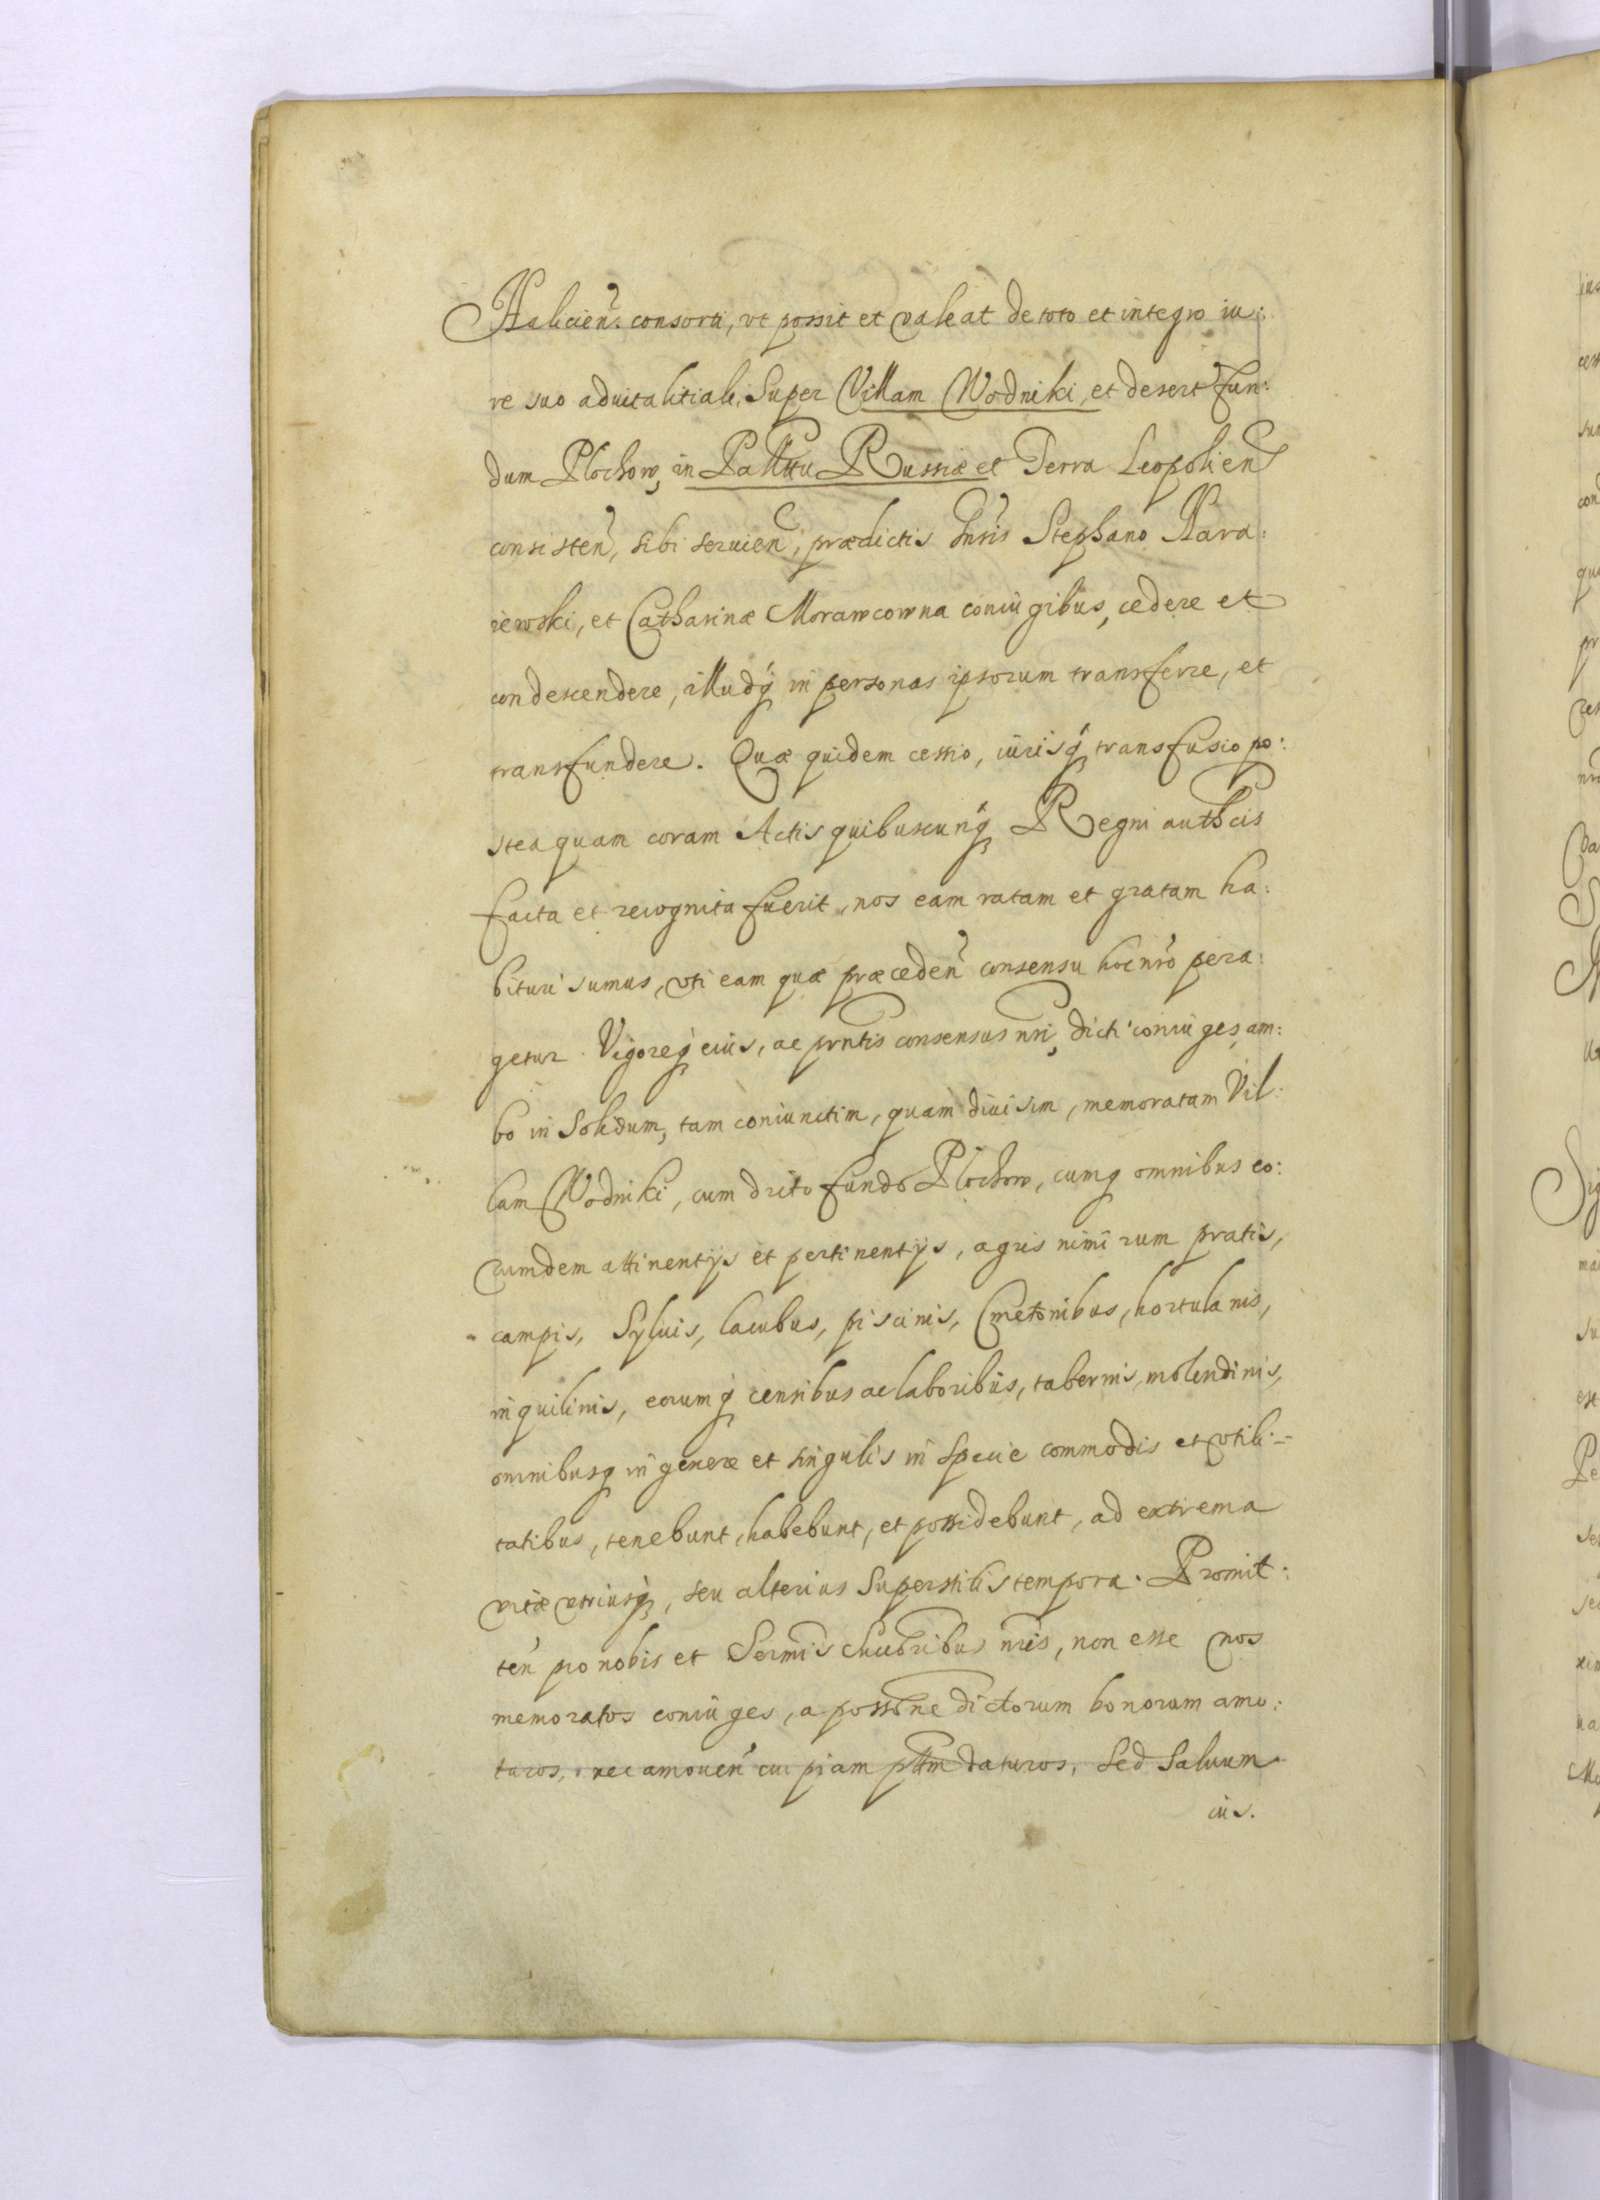 Halicien. consorti, ut possit et valeat de toto et integro iu:
re suo aduitalitiali, Super Villam Wodniki, et desert fun:
dum Plochow, in Pallttu Russiæ et Terra Leopolien
consisten, sibi seruien, prædictis Gnsis Stephano Kara:
iewski, et Catharinæ Morawcowna coniugibus, cedere et
condescendere, illudq in personas ipsorum transferre, et
transfundere. Quæ quidem cessio, iurisq transfusio po:
steaquam coram Actis quibuscunq Regni authcis
facta et recognita fuerit, nos eam ratam et gratam ha:
bituri sumus, uti eam quæ præceden consensu hoc nro pera:
getur. Vigoreq eius, ac prntis consensus nri, dicti coniuges, am:
bo in Solidum, tam coniunctim, quam diuisim, memoratam Vil:
lam Wodniki, cum dicto fundo Plochow, cumq omnibus eo:
rumdem attinentijs et pertinentijs, agris nimirum pratis,
campis, Syluis, lacubus, piscinis, Cmetonibus, hortulanis,
inquilinis, eorumq censibus ac laboribus, tabernis, molendinis,
omnibusq in genere et singulis in Specie commodis et utili:
tatibus, tenebunt, habebunt, et possidebunt, ad extrema
vitæ utriusq, seu alterius Superstitis tempora. Promit:
ten pro nobis et Sermis Succoribus nris, non esse nos
memoratos coniuges, a possone dictorum bonorum amo:
turos, nec amouen cuipiam ptttm daturos, sed Saluum
ius.